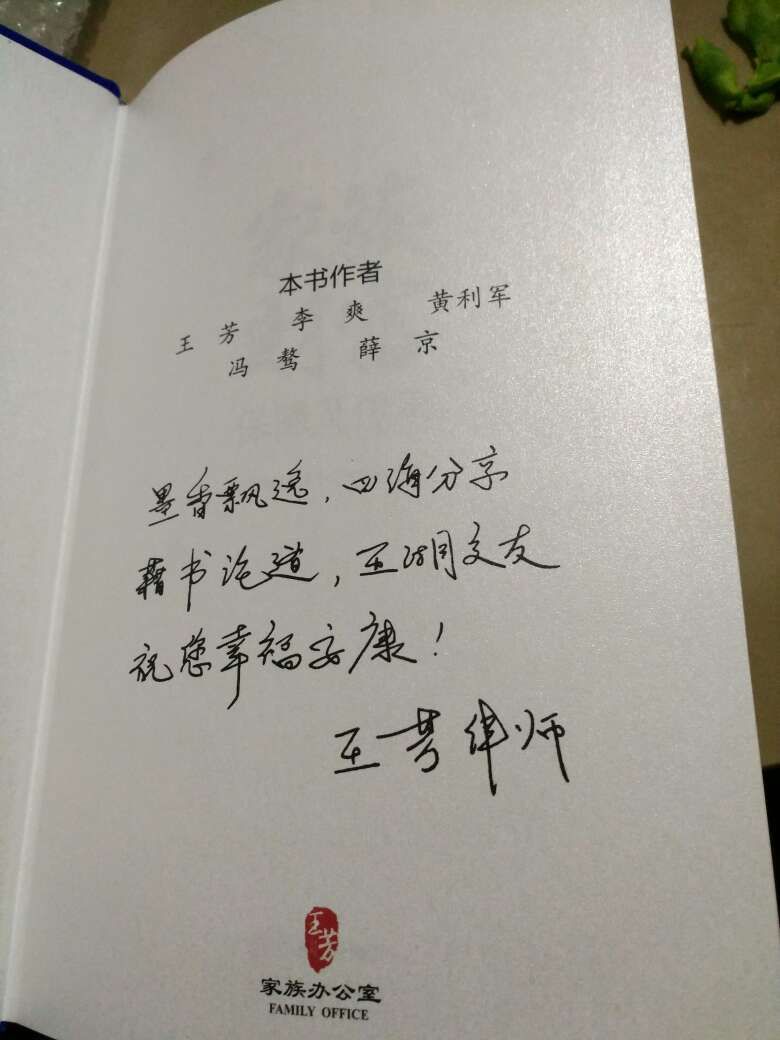 本书作者
王 芳 李 爽 黄利军
冯 骜 薛 京
墨香飘逸，四海分享
藉书论道，五湖交友
祝您幸福安康！
王芳律师
王芳
家族办公室
FAMILY OFFICE